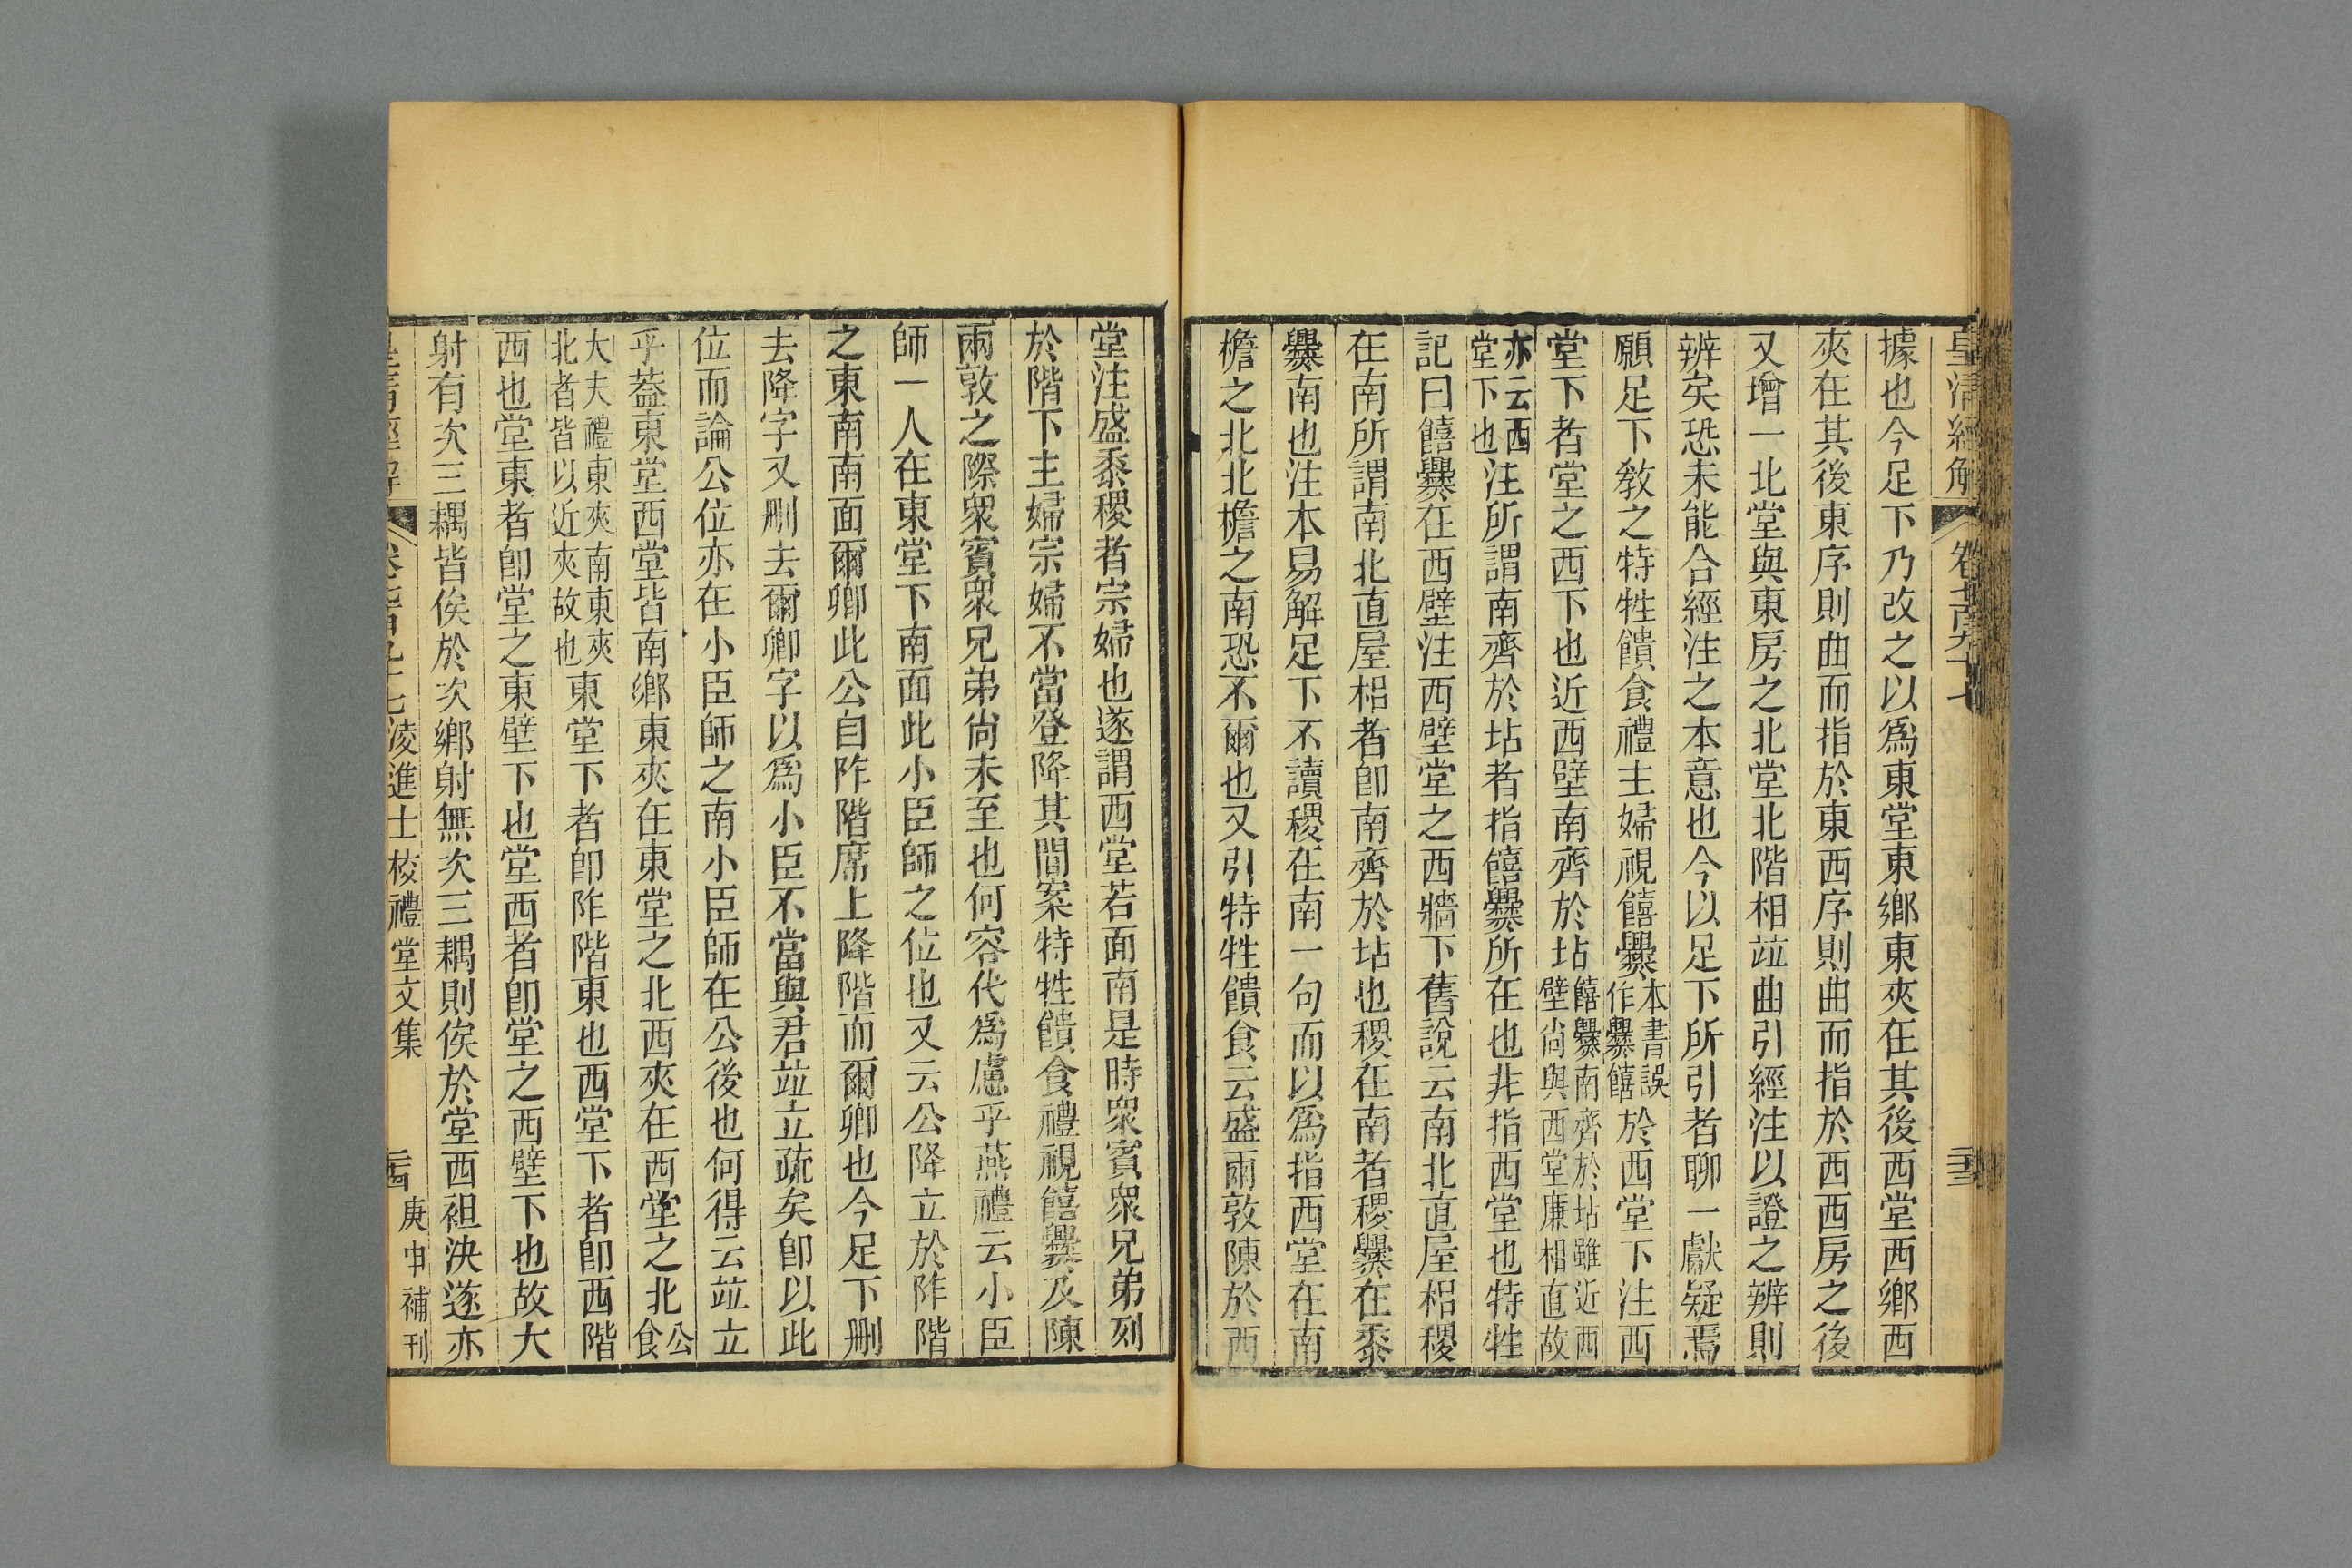 皇清經解 卷七百九十七 二十三
據也今足下乃改之以爲東堂東鄉東夾在其後西堂西鄉西
夾在其後東序則曲而指於東西序則曲而指於西西房之後
又增一北堂與東房之北堂北階相竝曲引經注以證之辨則
辨矣恐未能合經注之本意也今以足下所引者聊一獻疑焉
願足下教之特牲饋食禮主婦視饎爨本書誤作爨饎於西堂下注西
堂下者堂之西下也近西壁南齊於坫饎爨南齊於坫雖近西壁尙與西堂廉相直故
亦云西堂下也注所謂南齊於坫者指饎爨所在也非指西堂也特牲
記曰饎爨在西壁注西壁堂之西牆下舊說云南北直屋梠稷
在南所謂南北直屋梠者卽南齊於坫也稷在南者稷爨在黍
爨南也注本易解足下不讀稷在南一句而以爲指西堂在南
檐之北北檐之南恐不爾也又引特牲饋食云盛兩敦陳於西
堂注盛黍稷者宗婦也遂謂西堂若面南是時眾賓眾兄弟列
於階下主婦宗婦不當登降其間案特牲饋食禮視饎爨及陳
兩敦之際眾賓眾兄弟尙未至也何容代爲慮乎燕禮云小臣
師一人在東堂下南面此小臣師之位也又云公降立於阼階
之東南南面爾卿此公自阼階席上降階而爾卿也今足下刪
去降字又刪去爾卿字以爲小臣不當與君竝立疏矣卽以此
位而論公位亦在小臣師之南小臣師在公後也何得云竝立
乎葢東堂西堂皆南鄉東夾在東堂之北西夾在西堂之北公食
大夫禮東夾南東夾北者皆以近夾故也東堂下者卽阼階東也西堂下者卽西階
西也堂東者卽堂之東壁下也堂西者卽堂之西壁下也故大
射有次三耦皆俟於次鄉射無次三耦則俟於堂西袒決遂亦
皇清經解 卷七百九十七 淩進士校禮堂文集 二十四 庚申補刊